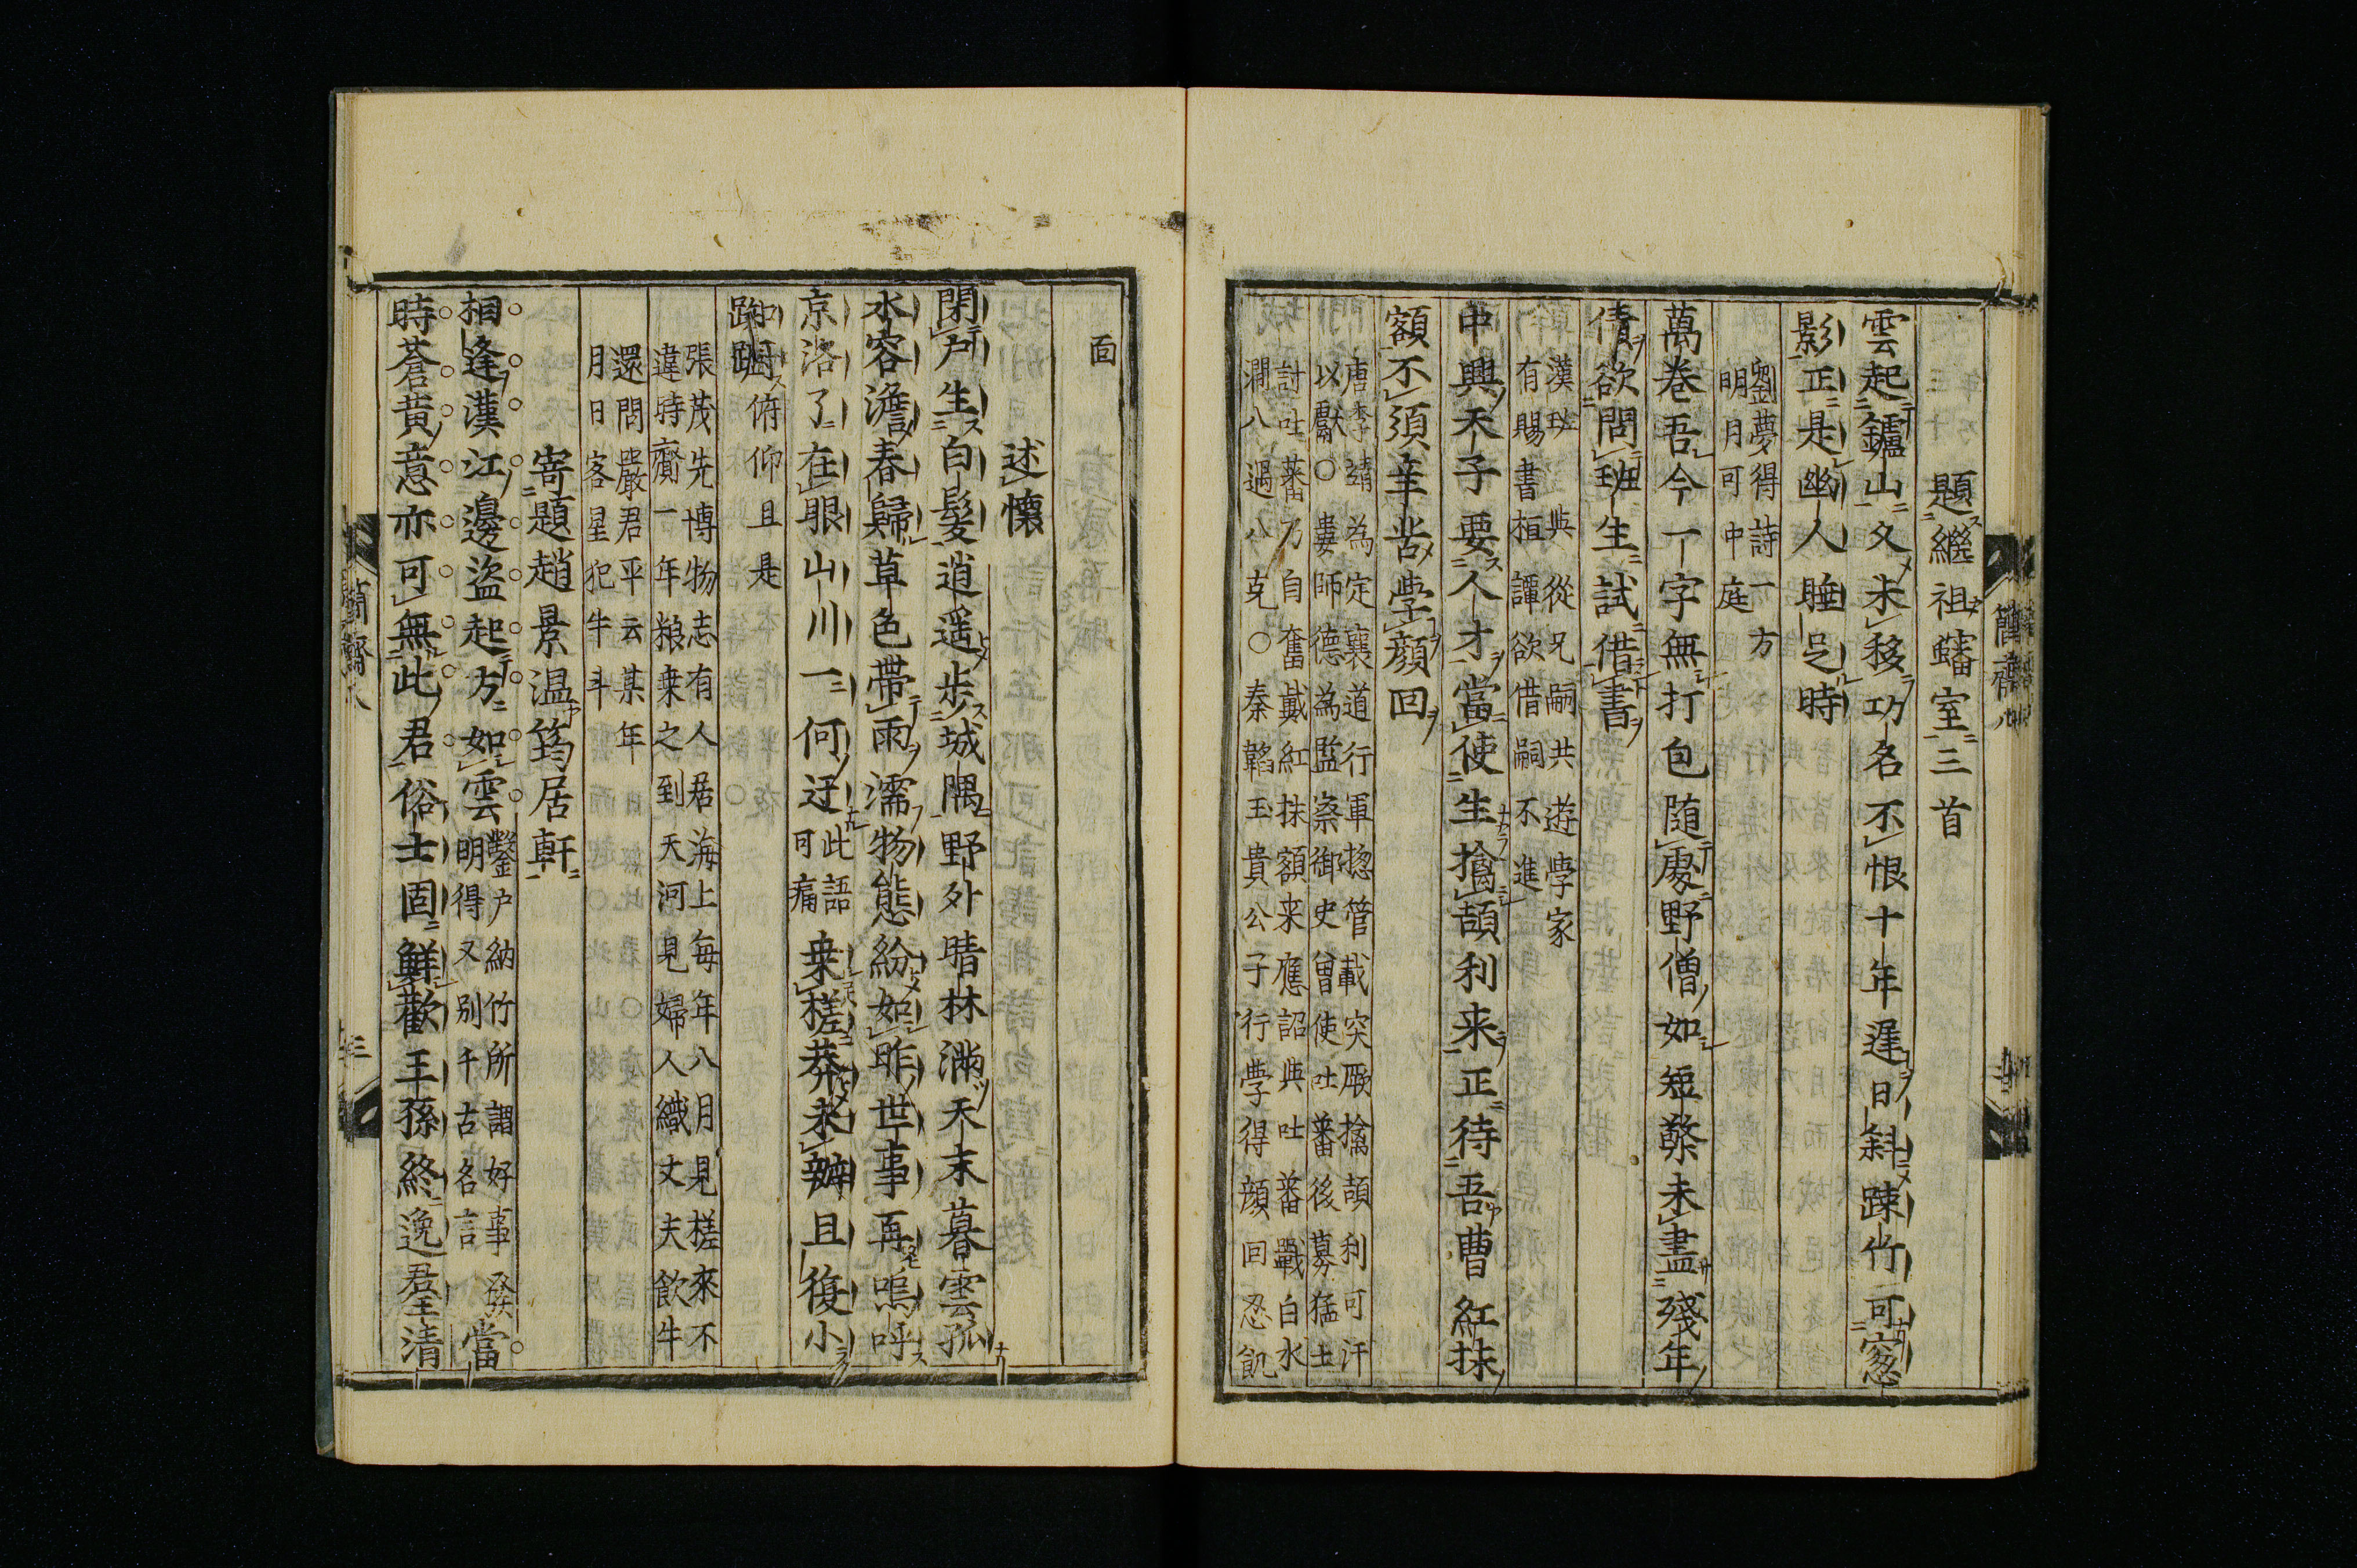 題繼祖蟠室三首
雲起鑪山久未移功名不恨十年遲日斜踈竹可窻
影正是幽人睡足時
劉夢得詩一方
明月可中庭
萬卷吾今一字無打包随處野僧如短檠未盡殘年
債欲問班生試借書
漢班與從兄嗣共遊學家
有賜書桓譚欲借嗣不進
中興天子要人才當使生擒頡利来正待吾曹紅抹
額不須辛苦學顔回
唐李靖為定襄道行軍揔管載突厥擒頡利可汗
以獻○婁師德為監察御史曾使吐蕃後募猛士
討吐蕃乃自奮戴紅抹額来應詔與吐蕃戰白水
澗八遇八克○秦韜玉貴公子行學得顔回忍飢
面
述懷
閉戸生白髮逍遥步城隅野外晴林滿天末暮雲孤
水容澹春歸草色帶雨濡物態紛如昨世事再嗚呼
京洛了在眼山川一何迂
此語
可痛
乗槎莽未辦且復小
踟蹰俯仰且是
張茂先博物志有人居海上每年八月見槎來不
違時齎一年粮乗之到天河見婦人織丈夫飲牛
還問嚴君平云某年
月日客星犯牛斗
寄題趙景温筠居軒
相逢漢江邊盗起方如雲
鑿户納竹所謂好事
明得又别千古名言
當
時蒼黄意亦可無此君俗士固鮮歡王孫終逸羣清
簡齋八
三